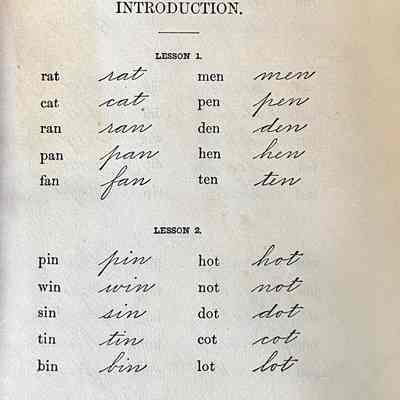 INTRODUCTION.
LESSON 1.
rat rat men men
cat cat pen pen
ran ran den den
pan pan hen hen
fan fan ten ten
LESSON 2.
pin pin hot hot
win win not not
sin sin dot dot
tin tin cot cot
bin bin lot lot